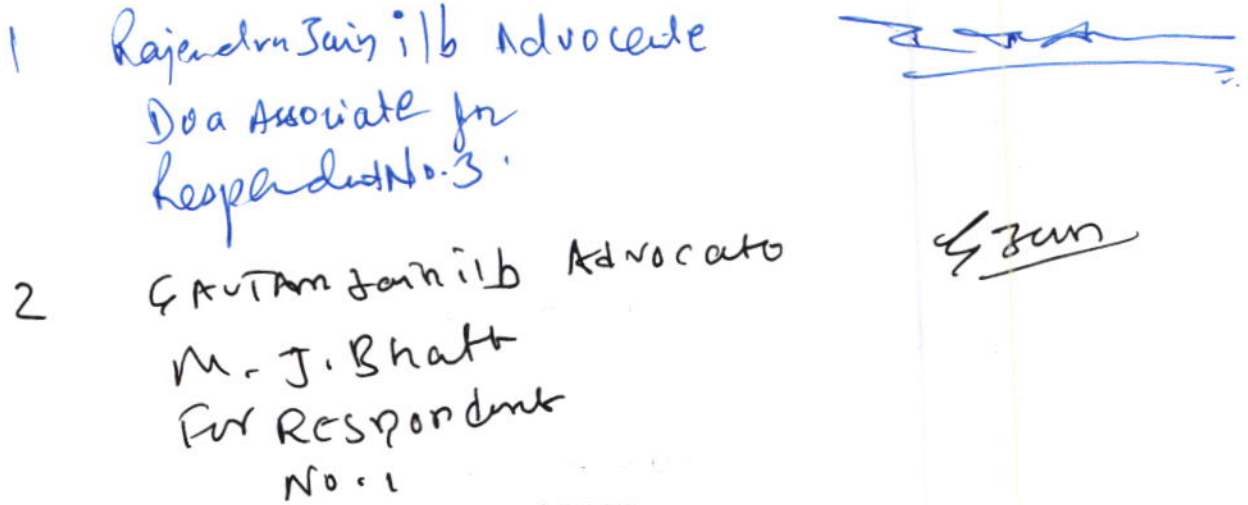 1 Rajendra Jain i/b Advocate
Dua Associate for
Respondent No. 3.
2 GAUTAM Jain i/b Advocate G Jain
M. J. Bhatt
For Respondent
No. 1